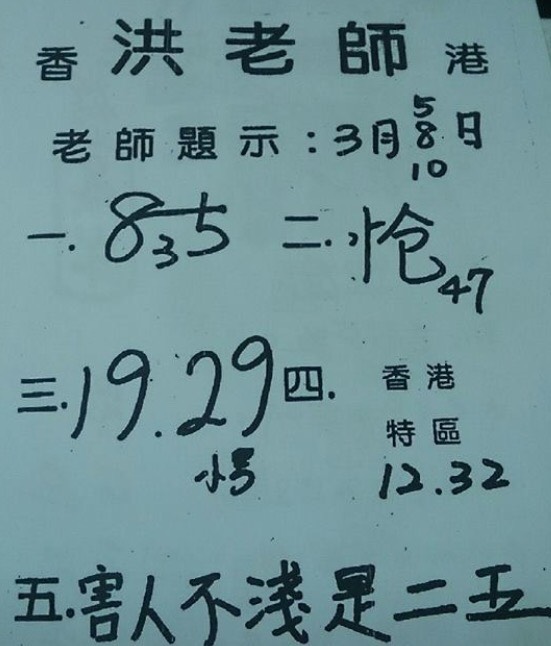 香 洪老師 港
老師題示：3月5 8 10日
一. 835 二. 怆47
三. 19.29 四. 香港
小号 特區
12.32
五. 害人不淺是二五